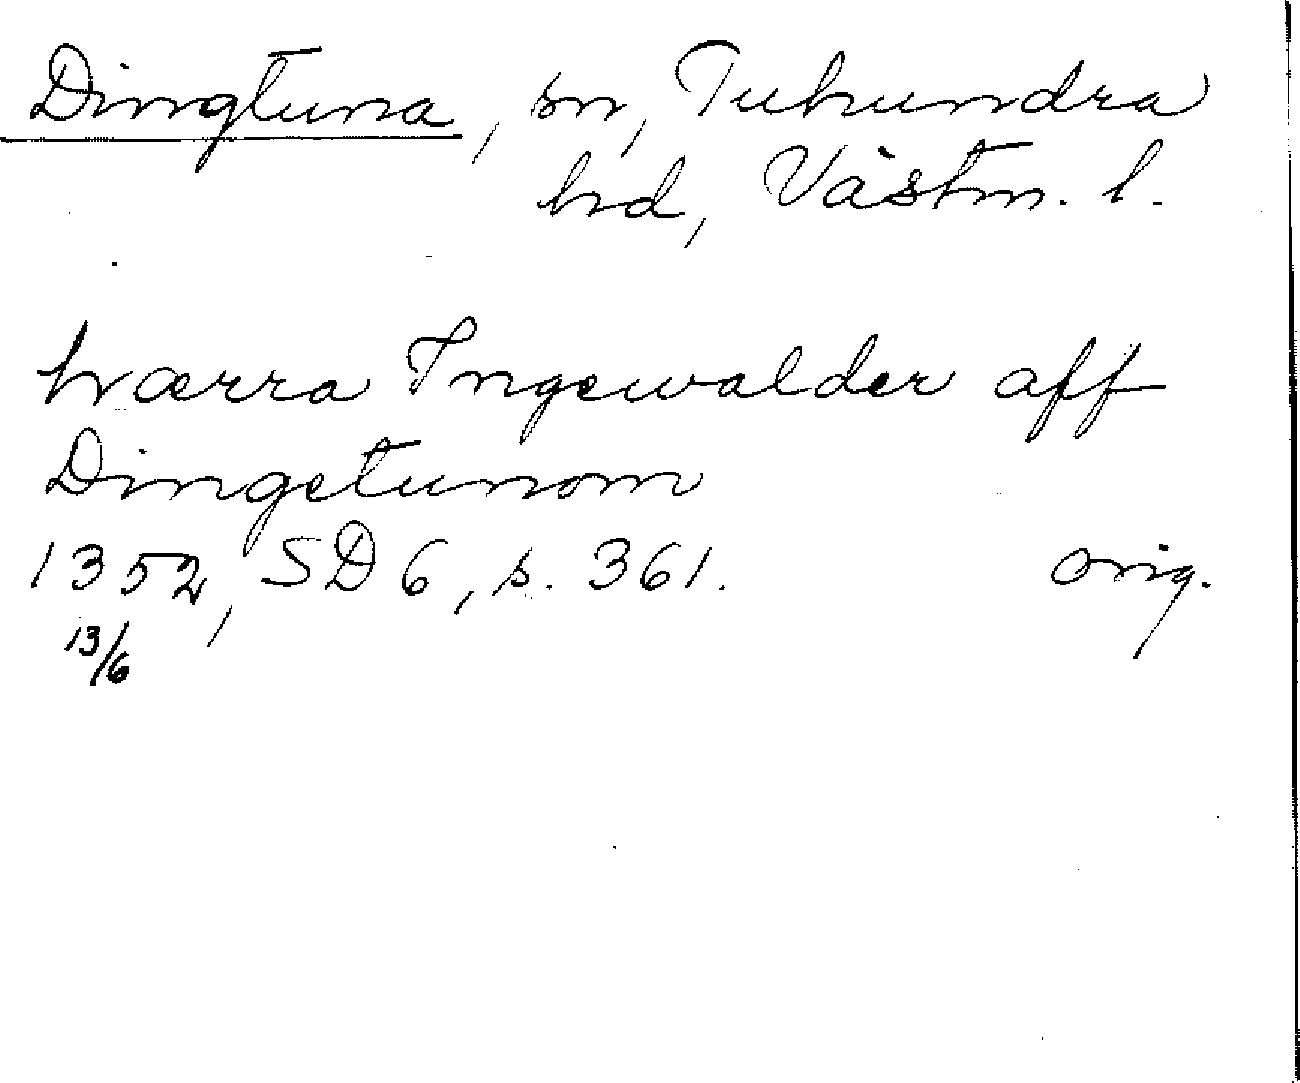 Dingtuna, sn, Tuhundra
hd, Västm. l.
hværra Ingewalder aff
Dingetunom
1352, SD 6, s. 361. orig.
13/6